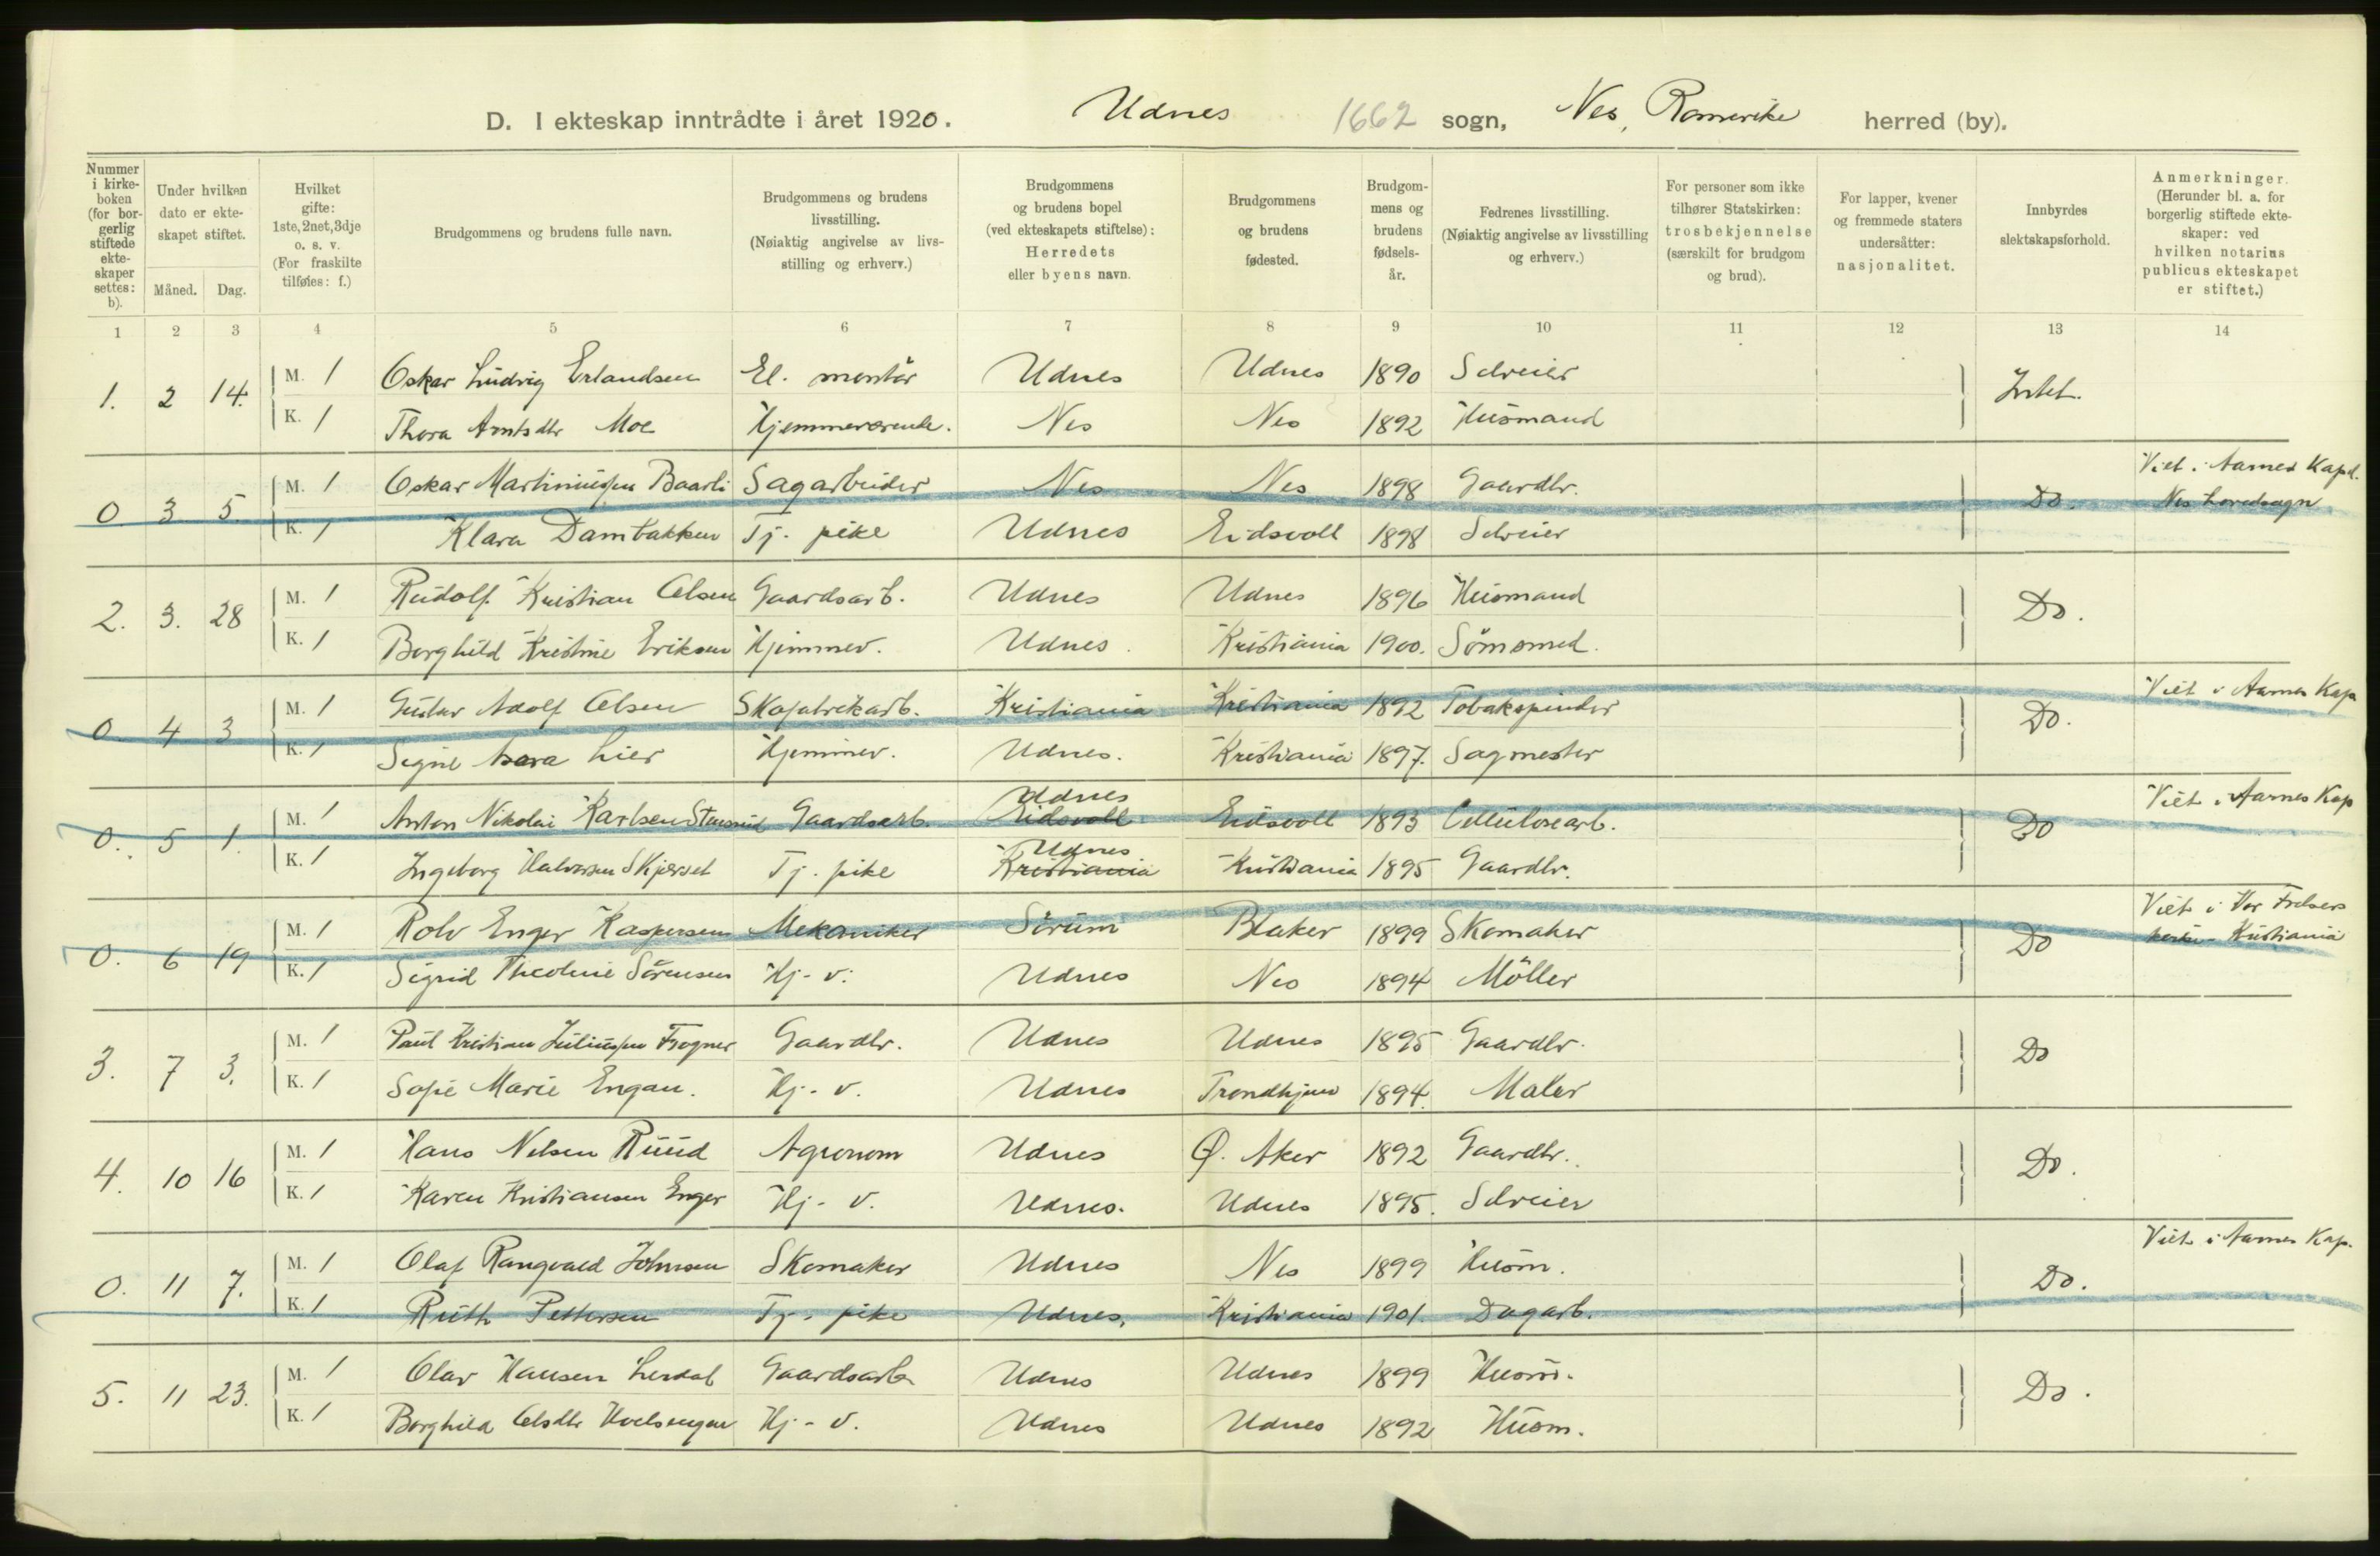 D. I ekteskap inntrådte i året 1920. Udnes 1662 sogn, Nes, Romerike herred (by).
Nummer i kirkeboken (for borgerlig stiftede ekteskaper settes: b).
Under hvilken dato er ekteskapet stiftet.
Måned. Dag.
Hvilket gifte: 1ste, 2net, 3dje o. s. v. (For fraskilte tilføies: f.)
Brudgommens og brudens fulle navn.
Brudgommens og brudens livsstilling. (Nøiaktig angivelse av livsstilling og erhverv.)
Brudgommens og brudens bopel (ved ekteskapets stiftelse): Herredets eller byens navn.
Brudgommens og brudens fødested.
Brudgommens og brudens fødselsår.
Fedrenes livsstilling. (Nøiaktig angivelse av livsstilling og erhverv.)
For personer som ikke tilhører Statskirken: trosbekjennelse (særskilt for brudgom og brud).
For lapper, kvener og fremmede staters undersåtter: nasjonalitet.
Innbyrdes slektskapsforhold.
Anmerkninger. (Herunder bl. a. for borgerlig stiftede ekteskaper: ved hvilken notarius publicus ekteskapet er stiftet.)
1 2 3 4 5 6 7 8 9 10 11 12 13 14
1. 2 14. M. 1 Oskar Ludvig Erlandsen El. montör Udnes Udnes 1890 Selveier Intet.
K. 1 Thora Arntsdtr Moe Hjemmeværende. Nes Nes 1892 Husmand
0 3 5. M. 1 Oskar Martiniussen Baarli Sagarbeider Nes Nes 1898 Gaardbr. Do. Viet i Aarnes Kapel. Nes hovedsogn
K. 1 Klara Dambakken Tj. pike Udnes Eidsvoll 1898 Selveier
2. 3. 28 M. 1 Rudolf Kristian Olsen Gaardsarb. Udnes Udnes 1896 Husmand Do.
K. 1 Borghild Kristine Eriksen Hjemmev. Udnes. Kristiania 1900. Sömsmed.
0. 4 3 M. 1 Gustav Adolf Olsen Skofabrikarb. Kristiania Kristiania 1892 Tobakspinder Do. Viet i Aarnes Kap
K. 1 Signe Aara Lier Hjemmev. Udnes. Kristiania 1897. Sagmester
0. 5 1. M. 1 Anton Nikolai Karlsen Stensrud Gaardsarb. Udnes Eidsvoll Eidsvoll 1893 Cellulosearb. Do Viet i Aarnes Kap
K. 1 Ingeborg Halvorsen Skjerset Tj. pike Udnes Kristiania Kristiania 1895 Gaardbr.
0. 6 19 M. 1 Rolv Enger Kaspersen Mekaniker Sörum Blaker 1899 Skomaker Do Viet i Vor Frelsers kirke - Kristiania
K. 1 Sigrid Theoline Sörensen Hj. v. Udnes Nes 1894 Möller
3. 7 3. M. 1 Paul Kristian Juliussen Frogner Gaardbr. Udnes Udnes 1895 Gaardbr. Do
K. 1 Sofie Marie Engan. Hj. v. Udnes Trondhjem 1894. Maler
4. 10 16 M. 1 Hans Nilsen Ruud Agronom Udnes Ø. Aker 1892 Gaardbr. Do.
K. 1 Karen Kristiansen Enger Hj. v. Udnes. Udnes 1895. Selveier
0. 11 7. M. 1 Olaf Rangvald Johnsen Skomaker Udnes Nes 1899 Husm. Do. Viet i Aarnes Kap.
K. 1 Ruth Pettersen Tj. pike Udnes. Kristiania 1901. Dagarb.
5. 11 23. M. 1 Olav Hansen Lerdal Gaardsarb Udnes Udnes 1899 Husm. Do.
K. 1 Borghild Olsdtr Hvelsengen Hj. v. Udnes Udnes 1892 Husm.